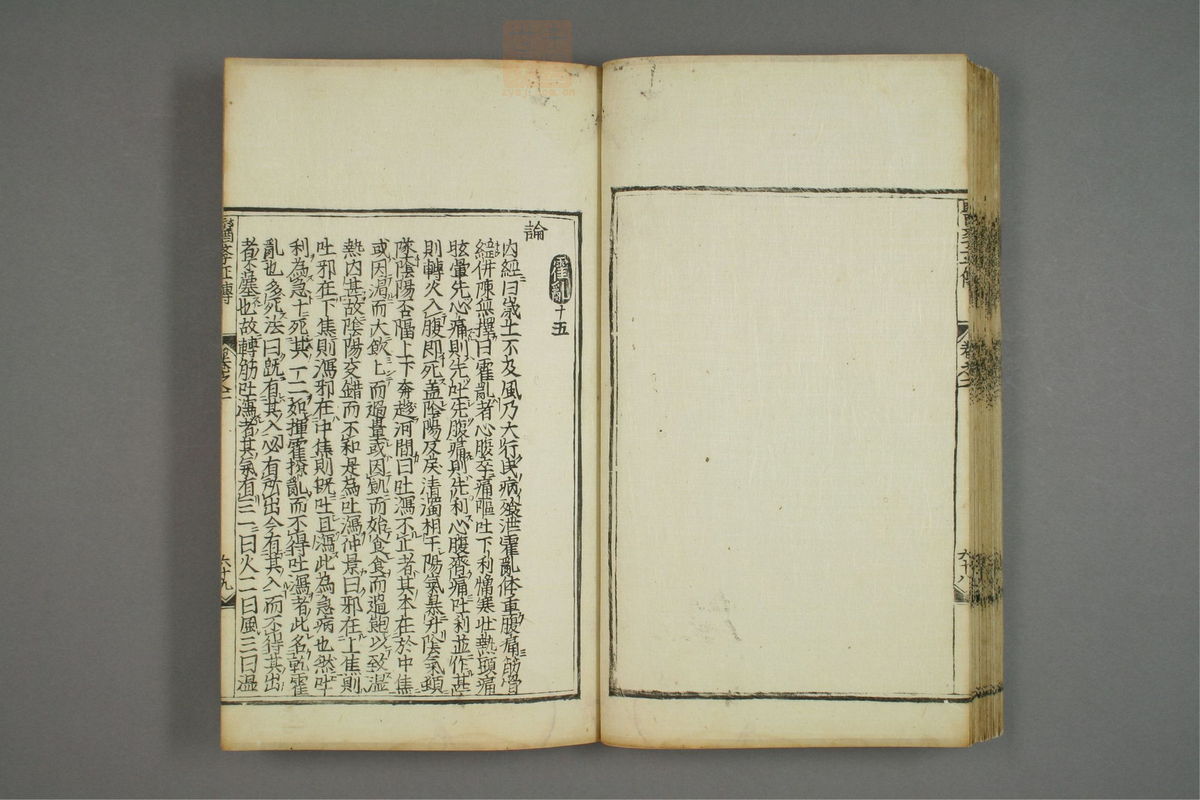 霍亂十五
論
内經曰歲土不及風乃大行民病飱泄霍亂体重腹痛筋骨
繇併陳無擇曰霍亂者心腹卒痛嘔吐下利憎寒壯熱頭痛
眩暈先心痛則先吐先腹痛則先利心腹齊痛吐利並作甚
則轉火入腹即死盖陰陽反戾清濁相干陽氣暴升陰氣頓
墜陰陽否膈上下奔趨河間曰吐瀉不止者其本在於中焦
或因渴而大飲上而過量或因飢而始食食而過飽以致溫
熱内甚故陰陽交錯而不和是為吐瀉仲景曰邪在上焦則
吐邪在下焦則瀉邪在中焦則既吐且瀉此為急病也然吐
利為急十死其一二如揮霍撩亂而不得吐瀉者此名乾霍
亂也多死法曰既有其入必有所出今有其入而不得其出
者不塞也故轉筋吐瀉者其氣有三一曰火二曰風三曰温
卷之二
六十九
六十八